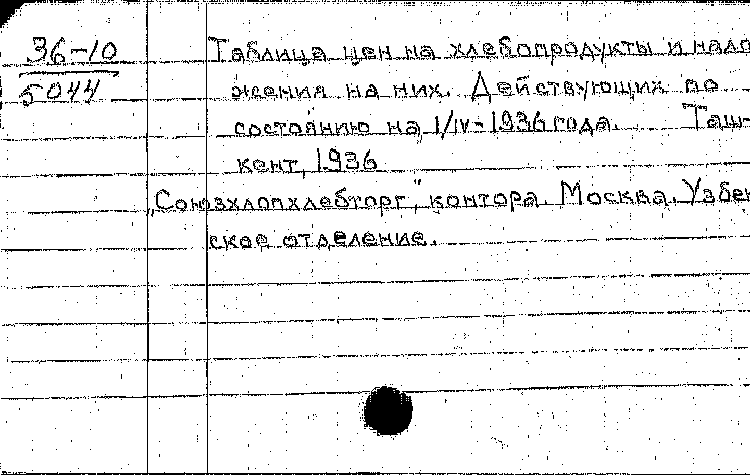 36-10
5044
Таблица цен на хлебопродукты и нало
жения на них. Действующих по
состоянию на 1/IV-1936 года. Таш-
кент, 1936
„Союзхлопхлебторг", контора. Москва. Узбек
ское отделение.